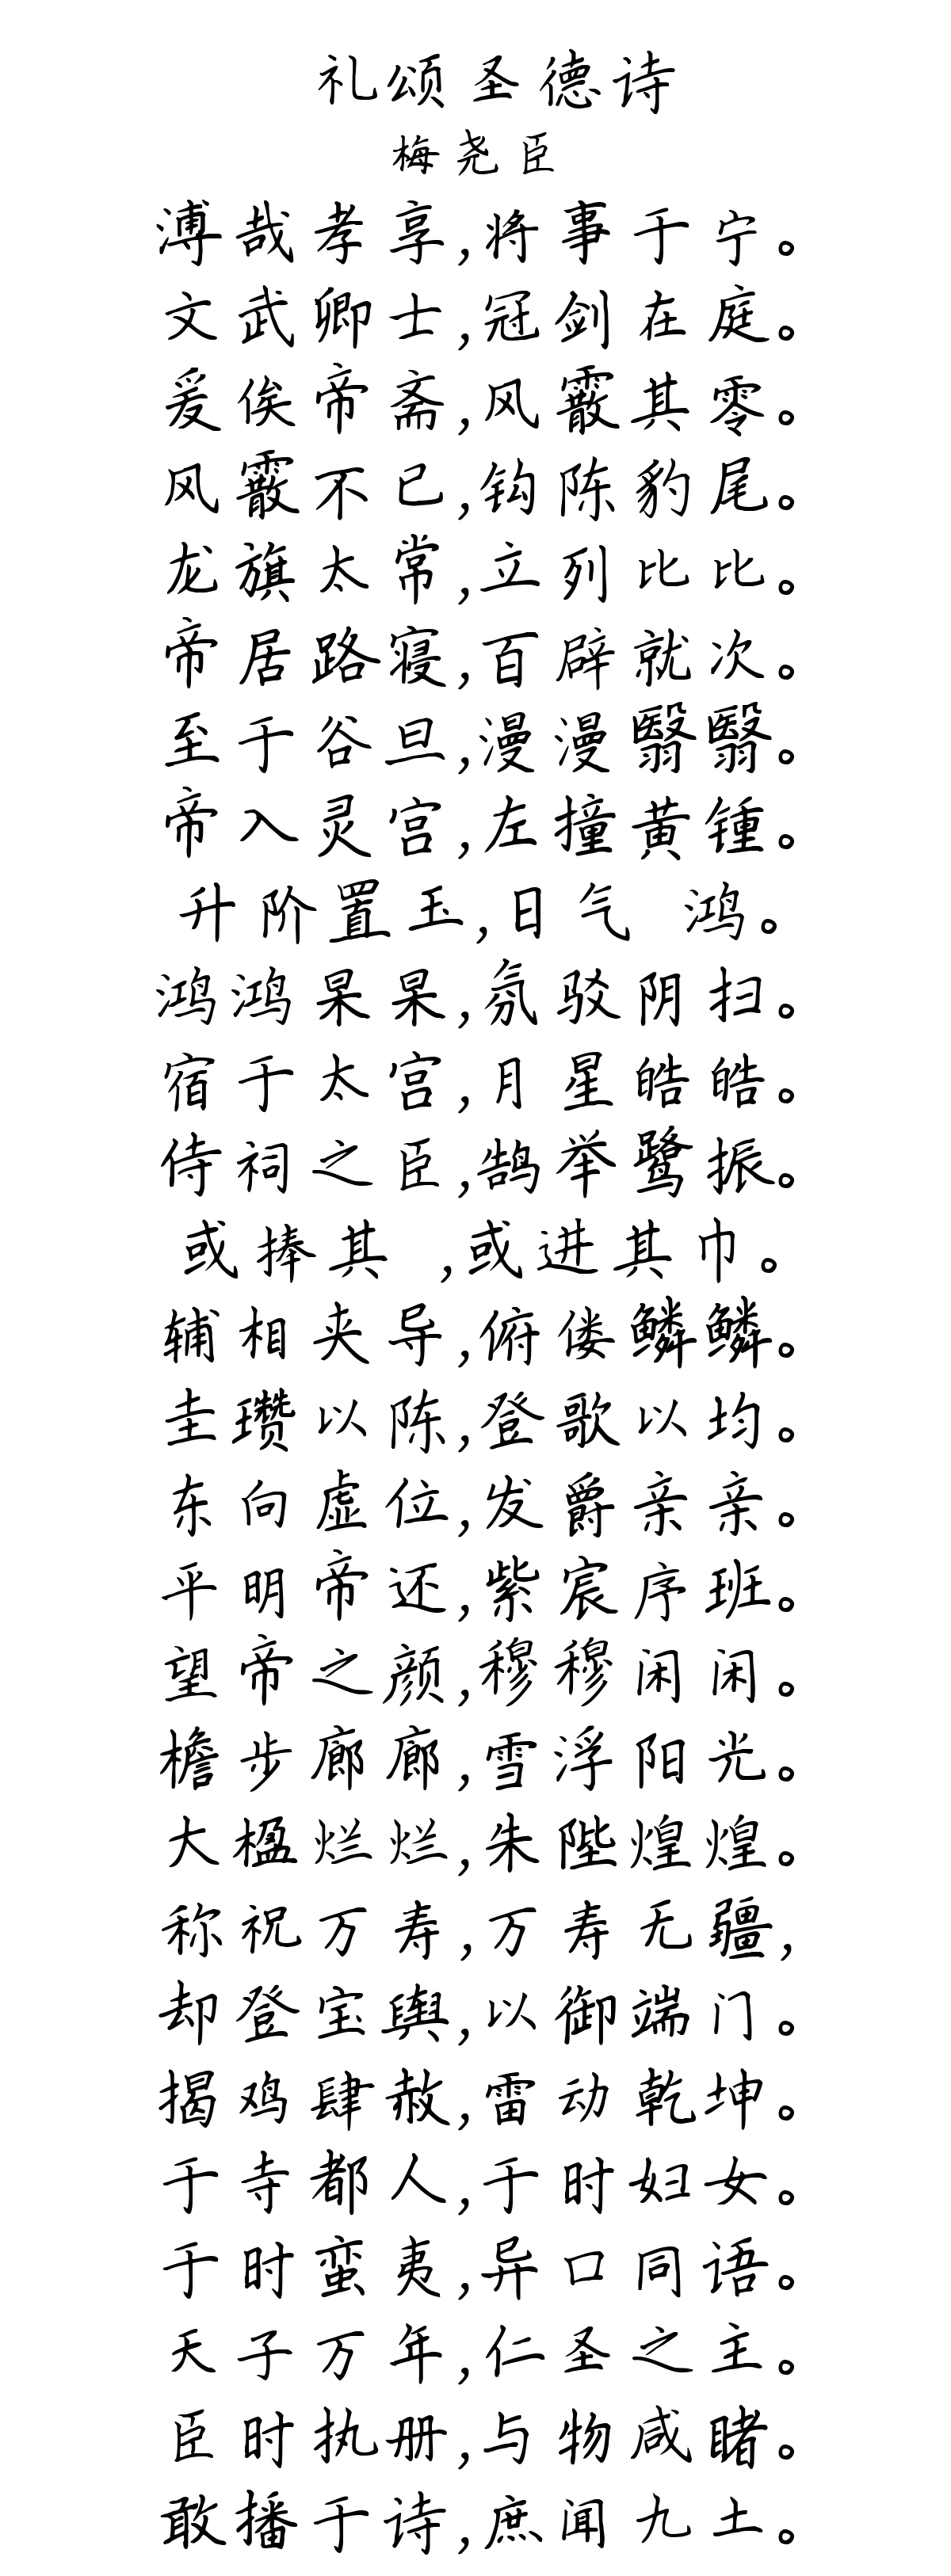 礼颂圣德诗
梅尧臣
溥哉孝享,将事于宁。
文武卿士,冠剑在庭。
爰俟帝斋,风霰其零。
风霰不已,钩陈豹尾。
龙旗太常,立列比比。
帝居路寝,百辟就次。
至于谷旦,漫漫翳翳。
帝入灵宫,左撞黄锺。
升阶置玉,日气 鸿。
鸿鸿杲杲,氛驳阴扫。
宿于太宫,月星皓皓。
侍祠之臣,鹄举鹭振。
或捧其 ,或进其巾。
辅相夹导,俯偻鳞鳞。
圭瓒以陈,登歌以均。
东向虚位,发爵亲亲。
平明帝还,紫宸序班。
望帝之颜,穆穆闲闲。
檐步廊廊,雪浮阳光。
大楹烂烂,朱陛煌煌。
称祝万寿,万寿无疆,
却登宝舆,以御端门。
揭鸡肆赦,雷动乾坤。
于寺都人,于时妇女。
于时蛮夷,异口同语。
天子万年,仁圣之主。
臣时执册,与物咸睹。
敢播于诗,庶闻九土。